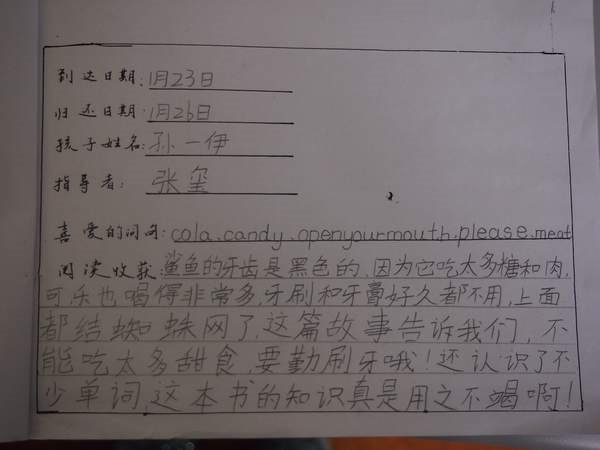 到达日期:1月23日
归还日期:1月26日
孩子姓名:孙一伊
指导者:张玺
喜爱的问句:cola.candy.openyourmouth.please.meat
阅读收获:鲨鱼的牙齿是黑色的,因为它吃太多糖和肉,
可乐也喝得非常多,牙刷和牙膏好久都不用,上面
都结蜘蛛网了,这篇故事告诉我们,不
能吃太多甜食,要勤刷牙哦!还认识了不
少单词,这本书的知识真是用之不竭啊!